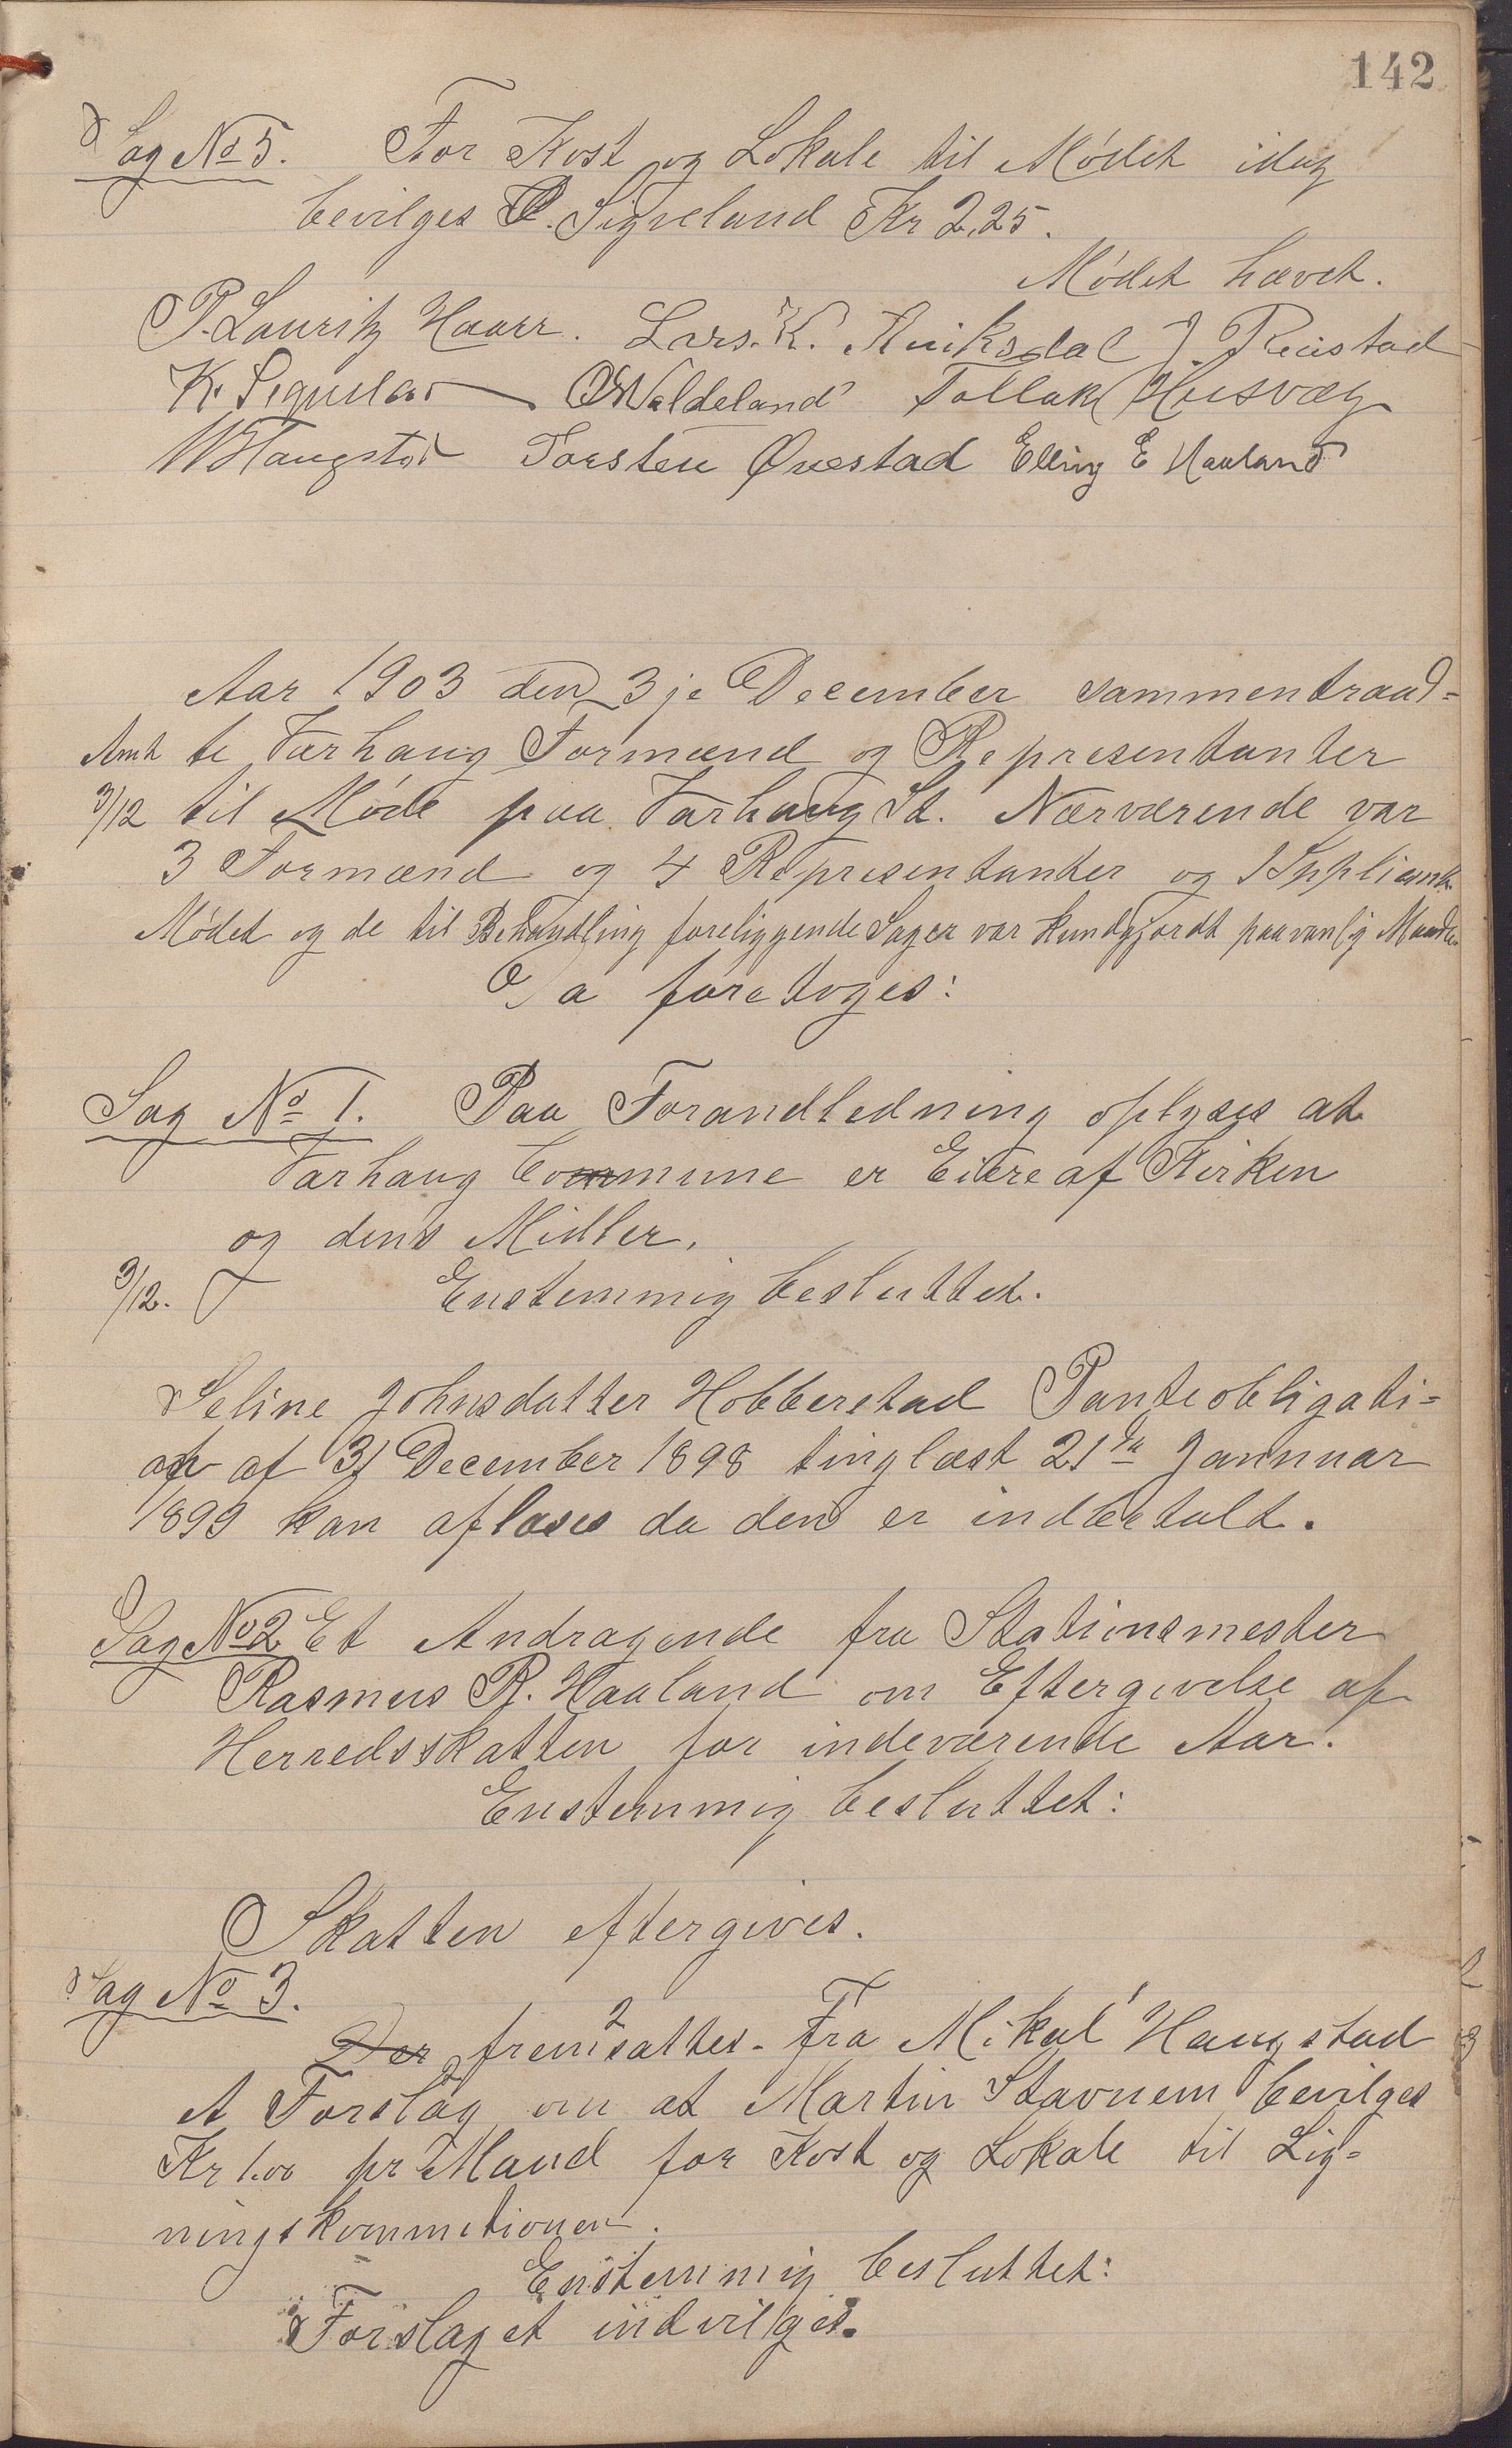 142
Sag No 5. For Kost og Lokale til Mødet idag
bevilges P. Sigveland Kr 2,25.
Mødet hævet.
P. Lauritz Haarr. Lars. K. Auiksdal J. Reiestad
K. Sigveland OWaldeland Tollak Husvæg
M Haugstad Torsten Ørestad Elling E Haaland
Aar 1903 den 3je December sammentraad-
te Varhaug Formænd og Representanter
Amt
3/12 til Møde paa Varhaug St. Nærværende var
3 Formænd og 4 Representanter og 1 Supliant.
Mødet og de til Behandling foreliggende Sager var kundgjordt paa vanlig Maade.
Da foretoges:
Sag No 1. Paa Forandledning oplyses at
Varhaug Commune er Eiere af Kirken
og dens Midler.
3/12. Enstemmig besluttet.
Seline Johnsdatter Hobberstad Panteobligati-
on af 31 December 1898 tinglæst 21de Jannuar
1899 kan aflæses da den er indbetalt.
Sag No 2 Et Andragende fra Stationsmester
Rasmus R. Haaland om Eftergivelse af
Herredsskatten for indeværende Aar.
Enstemmig besluttet:
Skatten eftergives.
Sag No 3.
Der fremsattes 2 Fra Mikal Haugstad
et Forslag 2 om at Martin Stavnem bevilges
Kr 1.00 pr Mand for Kost og Lokale til Lig-
ningskommitionen.
Enstemmig besluttet:
Forslaget indvilges.